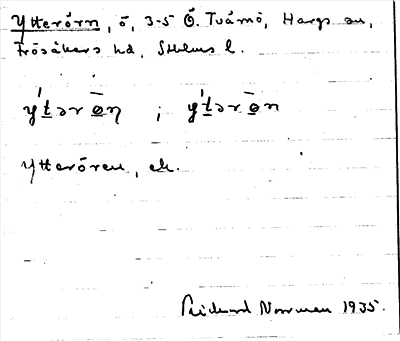 Ytterörn, ö, 3-5 Ö. Tvärnö, Hargs sn,
Frösåkers hd, Sthlms l.
y'tərōn ; y'tərōn
Ytterören, ek.
Rickard Norrman 1935.